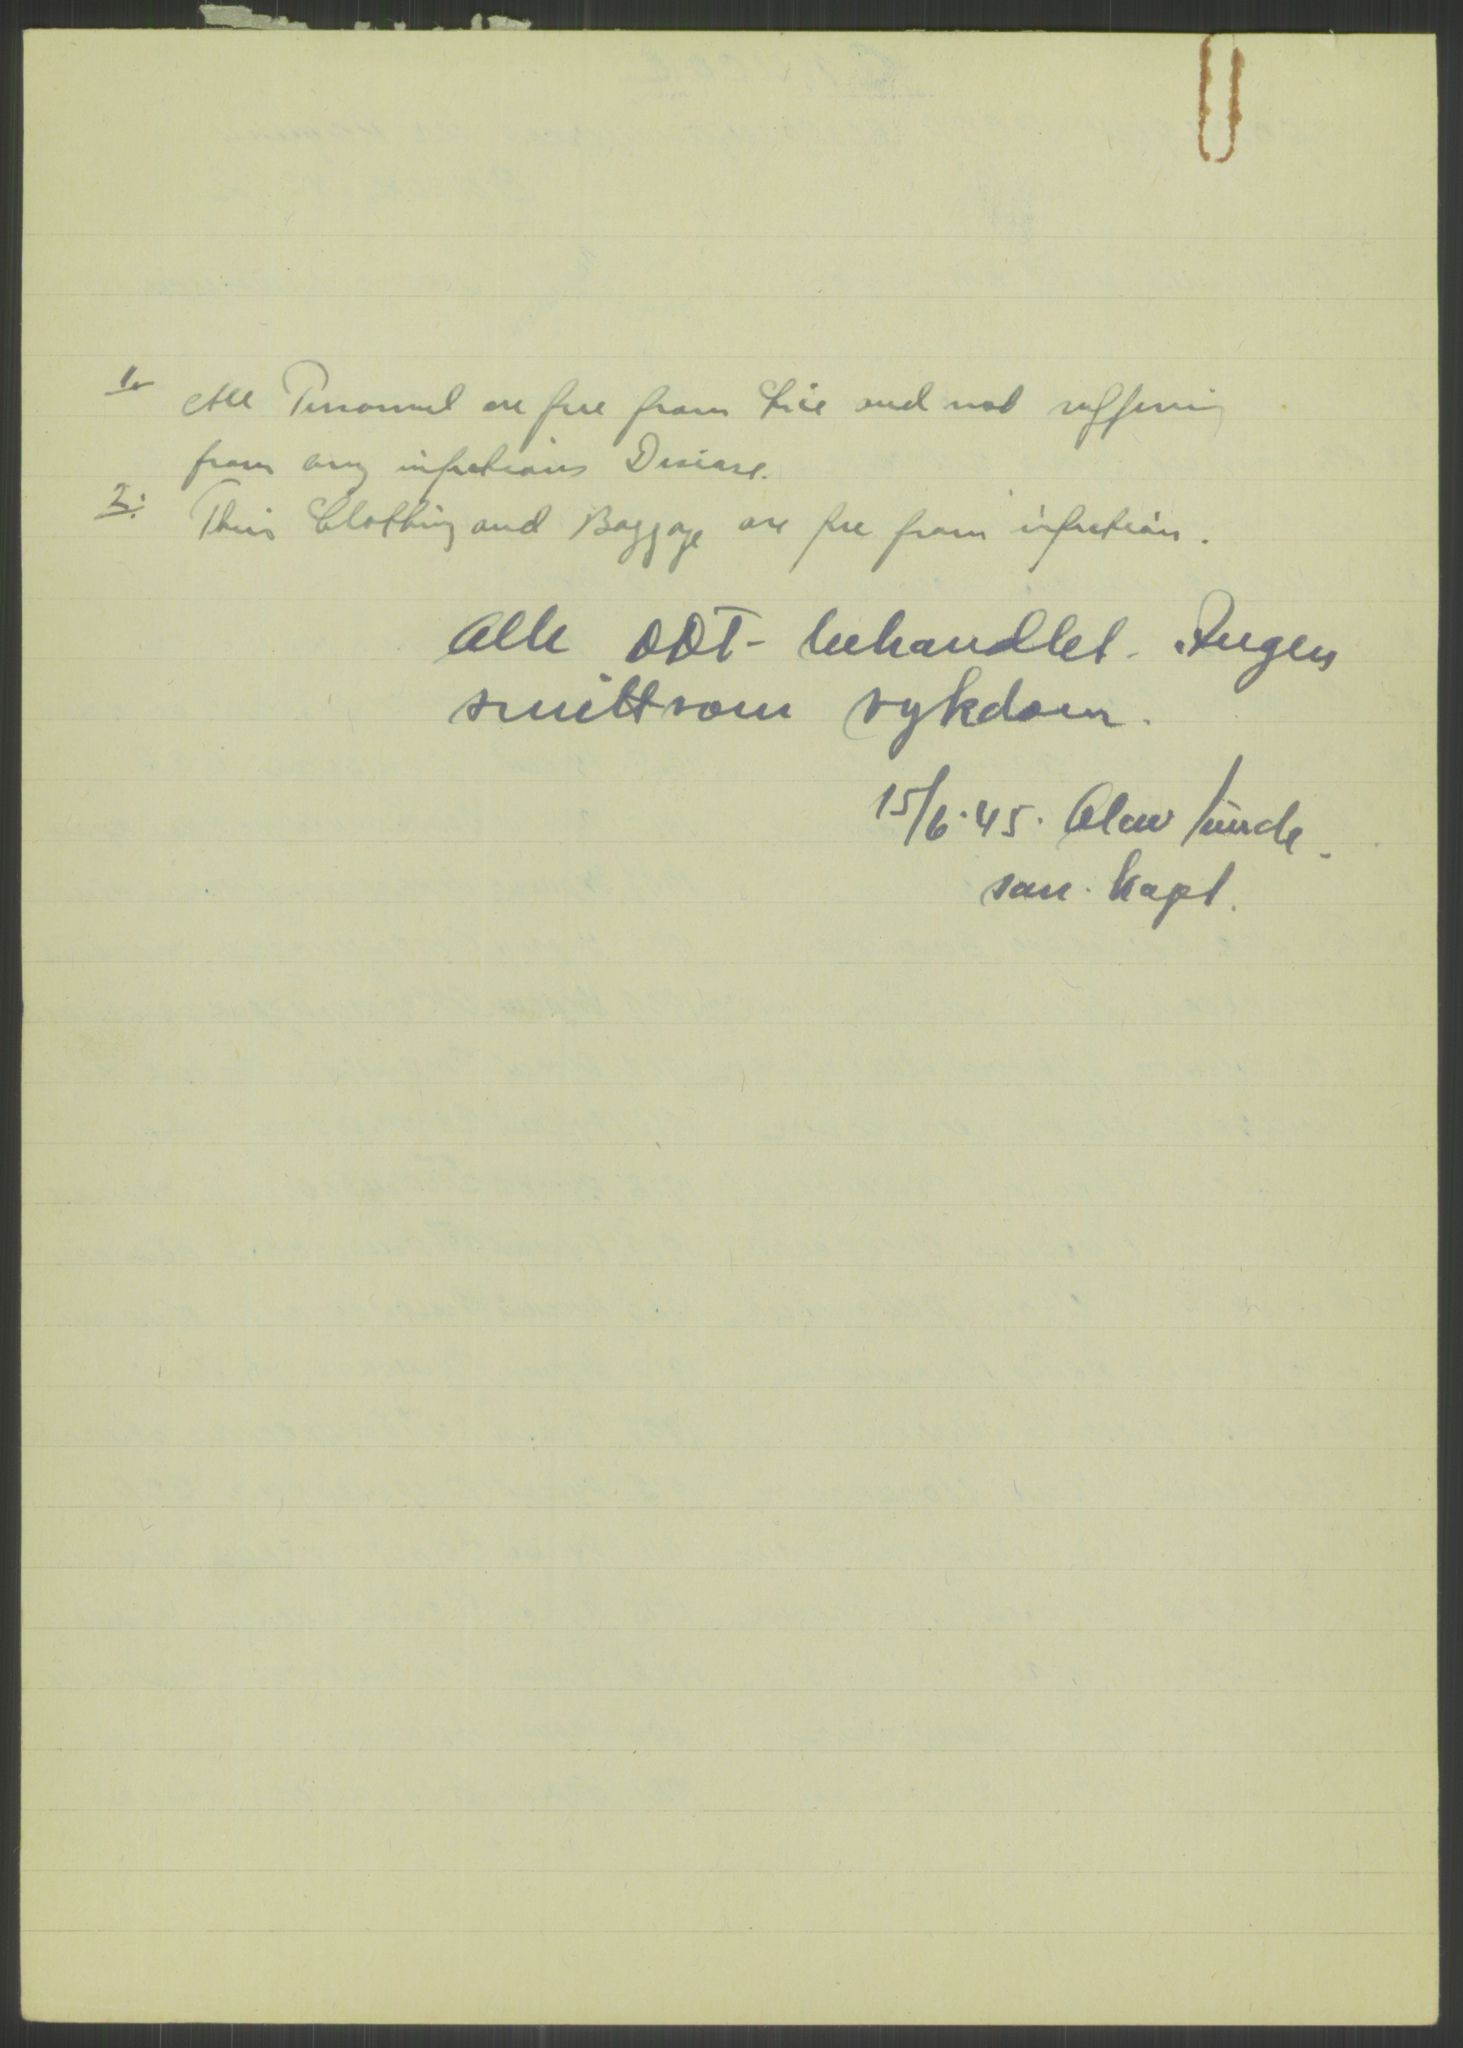 1. All Personnel are free from Lice and not suffering
from any infectious Disease.
2. Their Clothing and Baggage are free from infection.
Alle DDT- behandlet. Ingen
smittsom sykdom.
15/6.45. Olav
san. kapt.